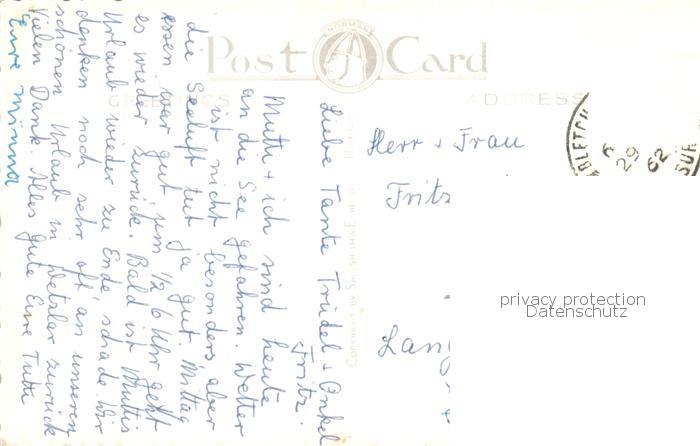 NORMAL
Post Card
GREETINGS
ADDRESS
Liebe Tante Trudel + Onkel
Fritz.
Mutti + ich sind heute
an die See gefahren. Wetter
ist nicht besonders aber
die Seeluft tut ja gut. Mittag
essen war gut um 1/2 6 Uhr geht
es wieder zurück. Bald ist Muttis
Urlaub wieder zu Ende schade. Wir
denken noch sehr oft an unseren
schönen Urlaub in Wetzlar zurück
Vielen Dank. Alles Gute Eure Tutti
Eure Minna
COPYRIGHT BY
Herr + Frau
Fritz
Lang
29
62
SUR
privacy protection
Datenschutz